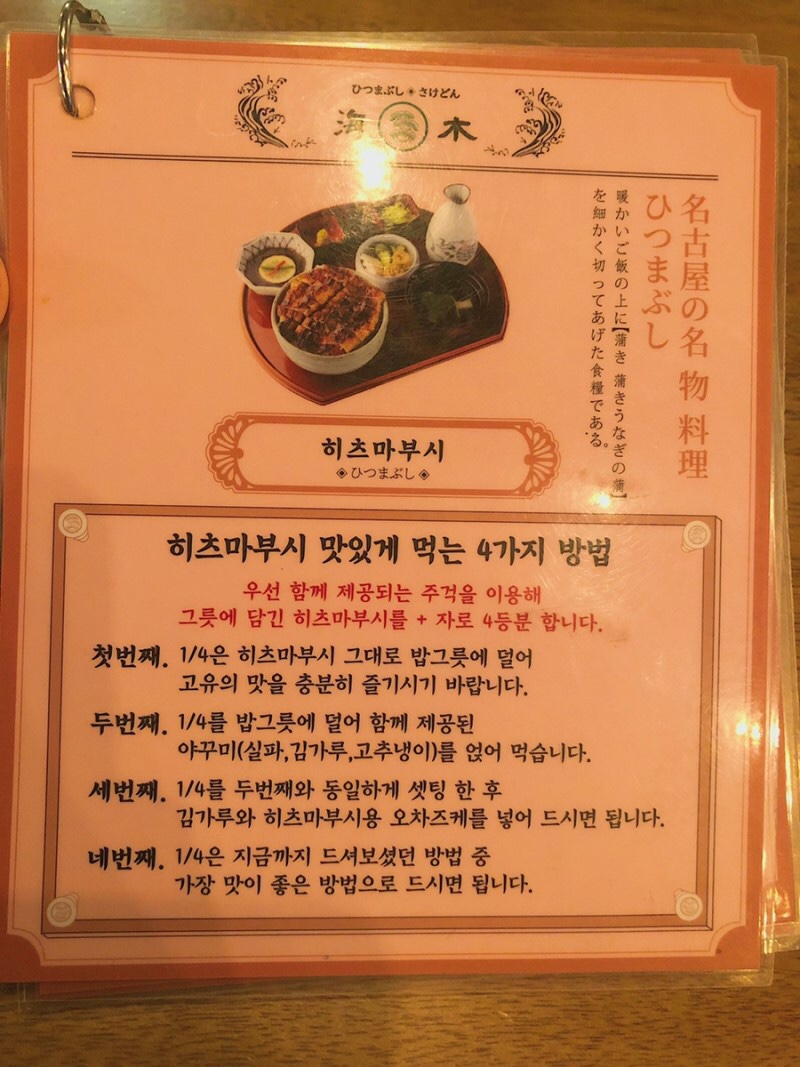 ひつまぶし◉さけどん
海 木
名古屋の名 物 料理
ひつまぶし
暖かいご飯の上に【蒲き 蒲きうなぎの蒲】
を細かく切ってあげた食糧である。
히츠마부시
◈ひつまぶし◈
히츠마부시 맛있게 먹는 4가지 방법
우선 함께 제공되는 주걱을 이용해
그릇에 담긴 히츠마부시를 + 자로 4등분 합니다.
첫번째. 1/4은 히츠마부시 그대로 밥그릇에 덜어
고유의 맛을 충분히 즐기시기 바랍니다.
두번째. 1/4를 밥그릇에 덜어 함께 제공된
야꾸미(실파,김가루,고추냉이)를 얹어 먹습니다.
세번째. 1/4를 두번째와 동일하게 셋팅 한 후
김가루와 히츠마부시용 오차즈케를 넣어 드시면 됩니다.
네번째. 1/4은 지금까지 드셔보셨던 방법 중
가장 맛이 좋은 방법으로 드시면 됩니다.